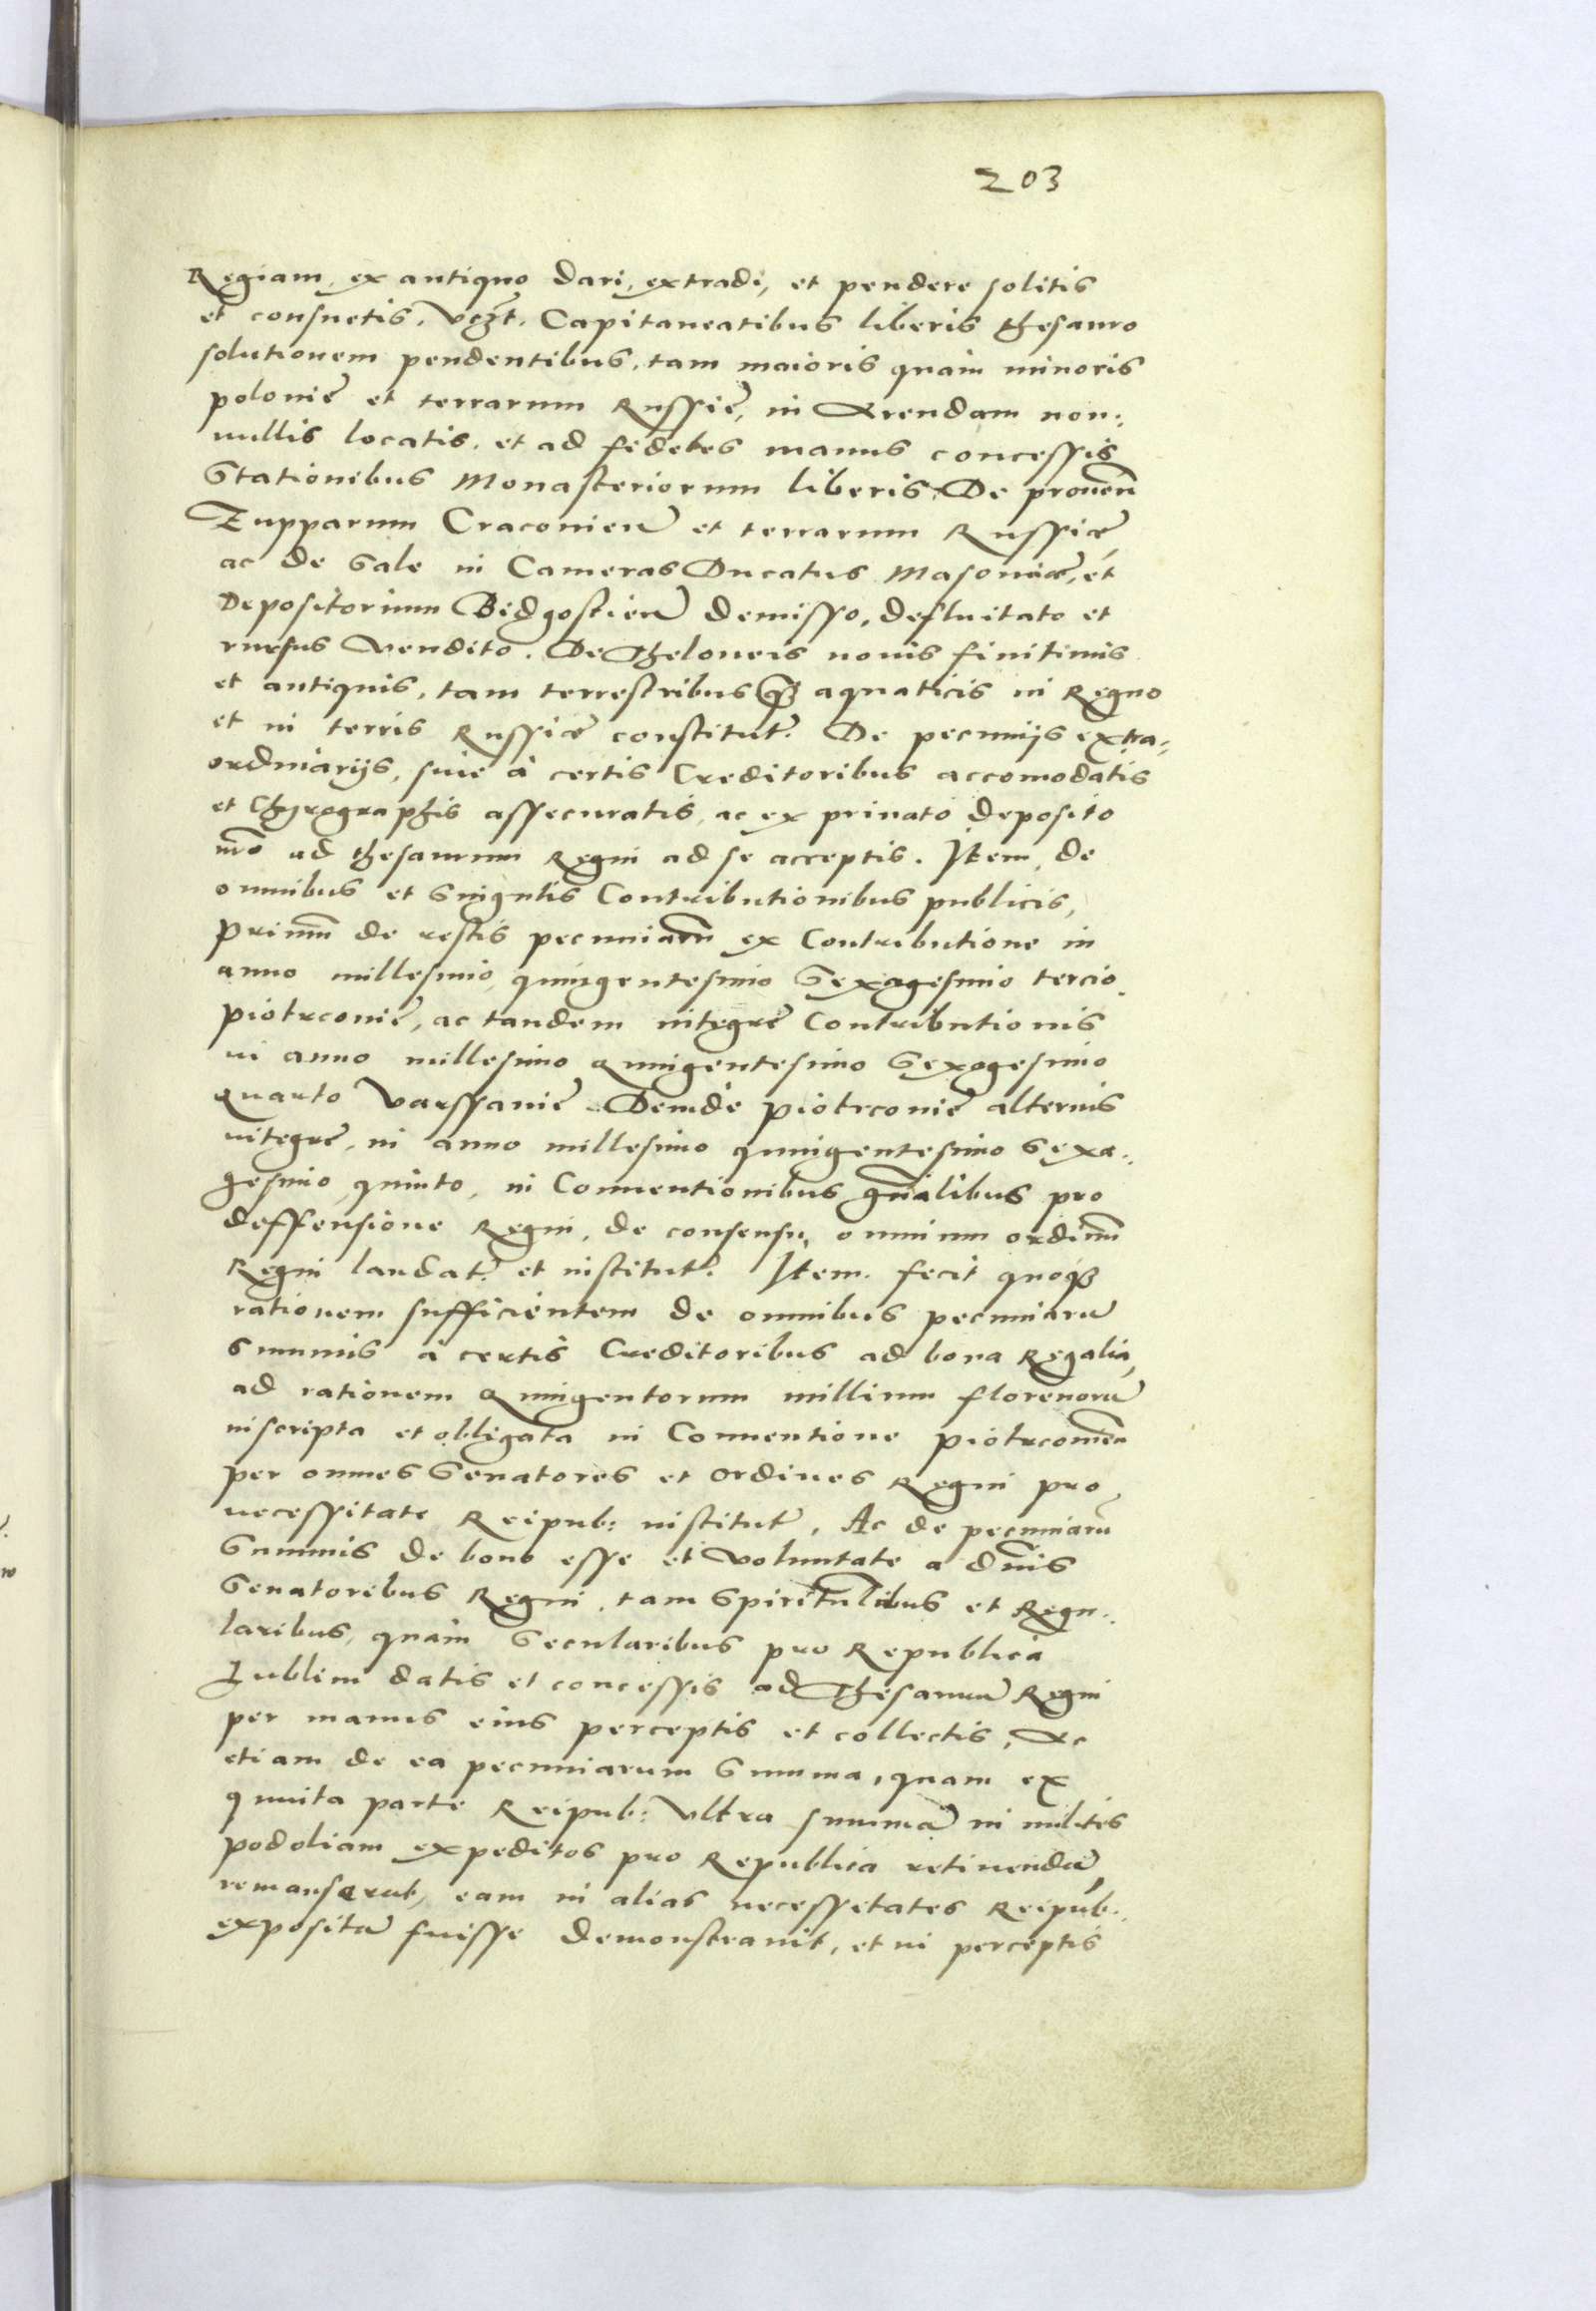 203
Regiam, ex antiquo dari, extradi, et pendere solitis
et consuetis. Vczt. Capitaneatibus liberis thesauro
solutionem pendentibus, tam maioris quàm minoris
polonię et terrarum Russię, in Arendam non:
nullis locatis. et ad fideles manus concessis
Stationibus Monasteriorum liberis. De prouen̄
Zupparum Craconien̄ et terrarum Russiæ,
ac de Sale in Cameras Ducatus Masoniæ, et
Depositorium Bidgostien̄ demisso, defluitato et
rursus Vendito. De Theloneis nouis finitimis
et antiquis, tam terrestribus q̃ʒ aquaticis in Regno
et in terris Russiæ constitut?. De pecunijs extra:
ordinarijs, siue à certis Creditoribus accomodatis
et Chyrographis assecuratis, ac ex priuato deposito
ad thesaurum Regni ad se acceptis. Item de
omnibus et Singulis Contributionibus publicis,
primū de restis pecuniarū ex Contributione in
anno millesimo, quingentesimo Sexagesimo tercio.
piotrconię, ac tandem integrę Contributionis
in anno millesimo Quingentesimo Sexogesimo
quarto Varssauię. Deinde piotrconię alterius
integrę, in anno millesimo quingentesimo Sexa:
gesimo quinto, in Conuentionibus gn̄alibus pro
deffensione Regni, de consensu, omnium ordinū
Regni laudat? et institut?. Item. fecit quoqʒ
rationem sufficientem de omnibus pecuniarū
Summis à certis Creditoribus ad bona Regalia,
ad rationem Quingentorum millium florenorū
inscripta et obligata in Conuentione piotrconien̄
per omnes Senatores et Ordines Regni pro
necessitate Reipub: institut?, Ac de pecuniarū
Summis de bono esse et Voluntate a dn̄is
Senatoribus Regni, tam Spiritu̅libus et Regu:
laribus, quàm Secularibus pro Republica
datis et concessis ad Thesaurū Regni
per manus eius perceptis et collectis, Ac
etiam de ea pecuniarum Summa, quam ex
quinta parte Reipub: Vltra summā in milites
podoliam expeditos pro Republica retinendā,
remanserat, eam in alias necessitates Reipub:
expositā fuisse demonstrauit, et in perceptis